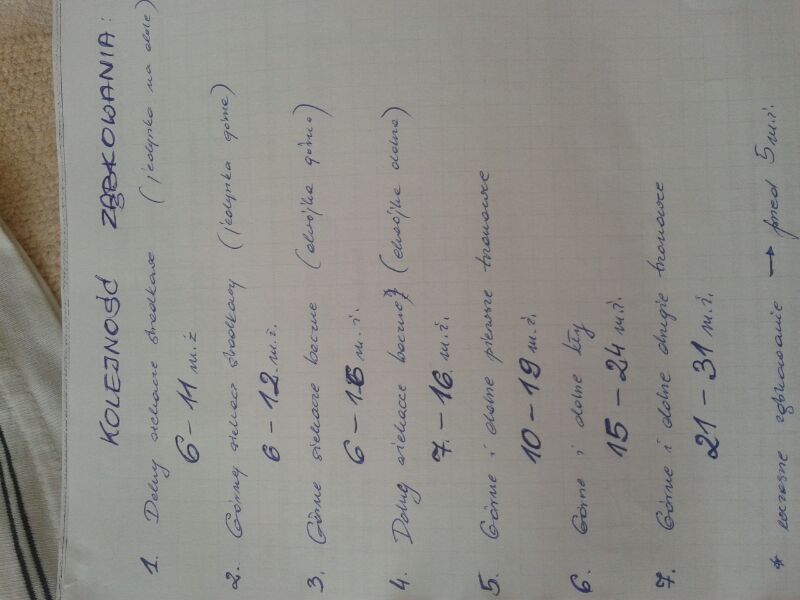 KOLEJNOŚĆ ZĄBKOWANIA:
1. Dolny siekacz środkowy (jedynka na dole)
6 - 11 m.ż
2. Górny siekacz środkowy (jedynka górna)
6 - 12 m.ż.
3. Górne siekacze boczne (dwójka górna)
6 - m.ż.
4. Dolny siekacze boczne (dwójka dolna)
7. - 16. m.ż.
5. Górne i dolne pierwsze trzonowe
10 - 19 m.ż.
6. Górne i dolne kły
15 - 24 m.ż.
7. Górne i dolne drugie trzonowe
21 - 31 m.ż.
* wczesne ząbkowanie → przed 5 m.ż.